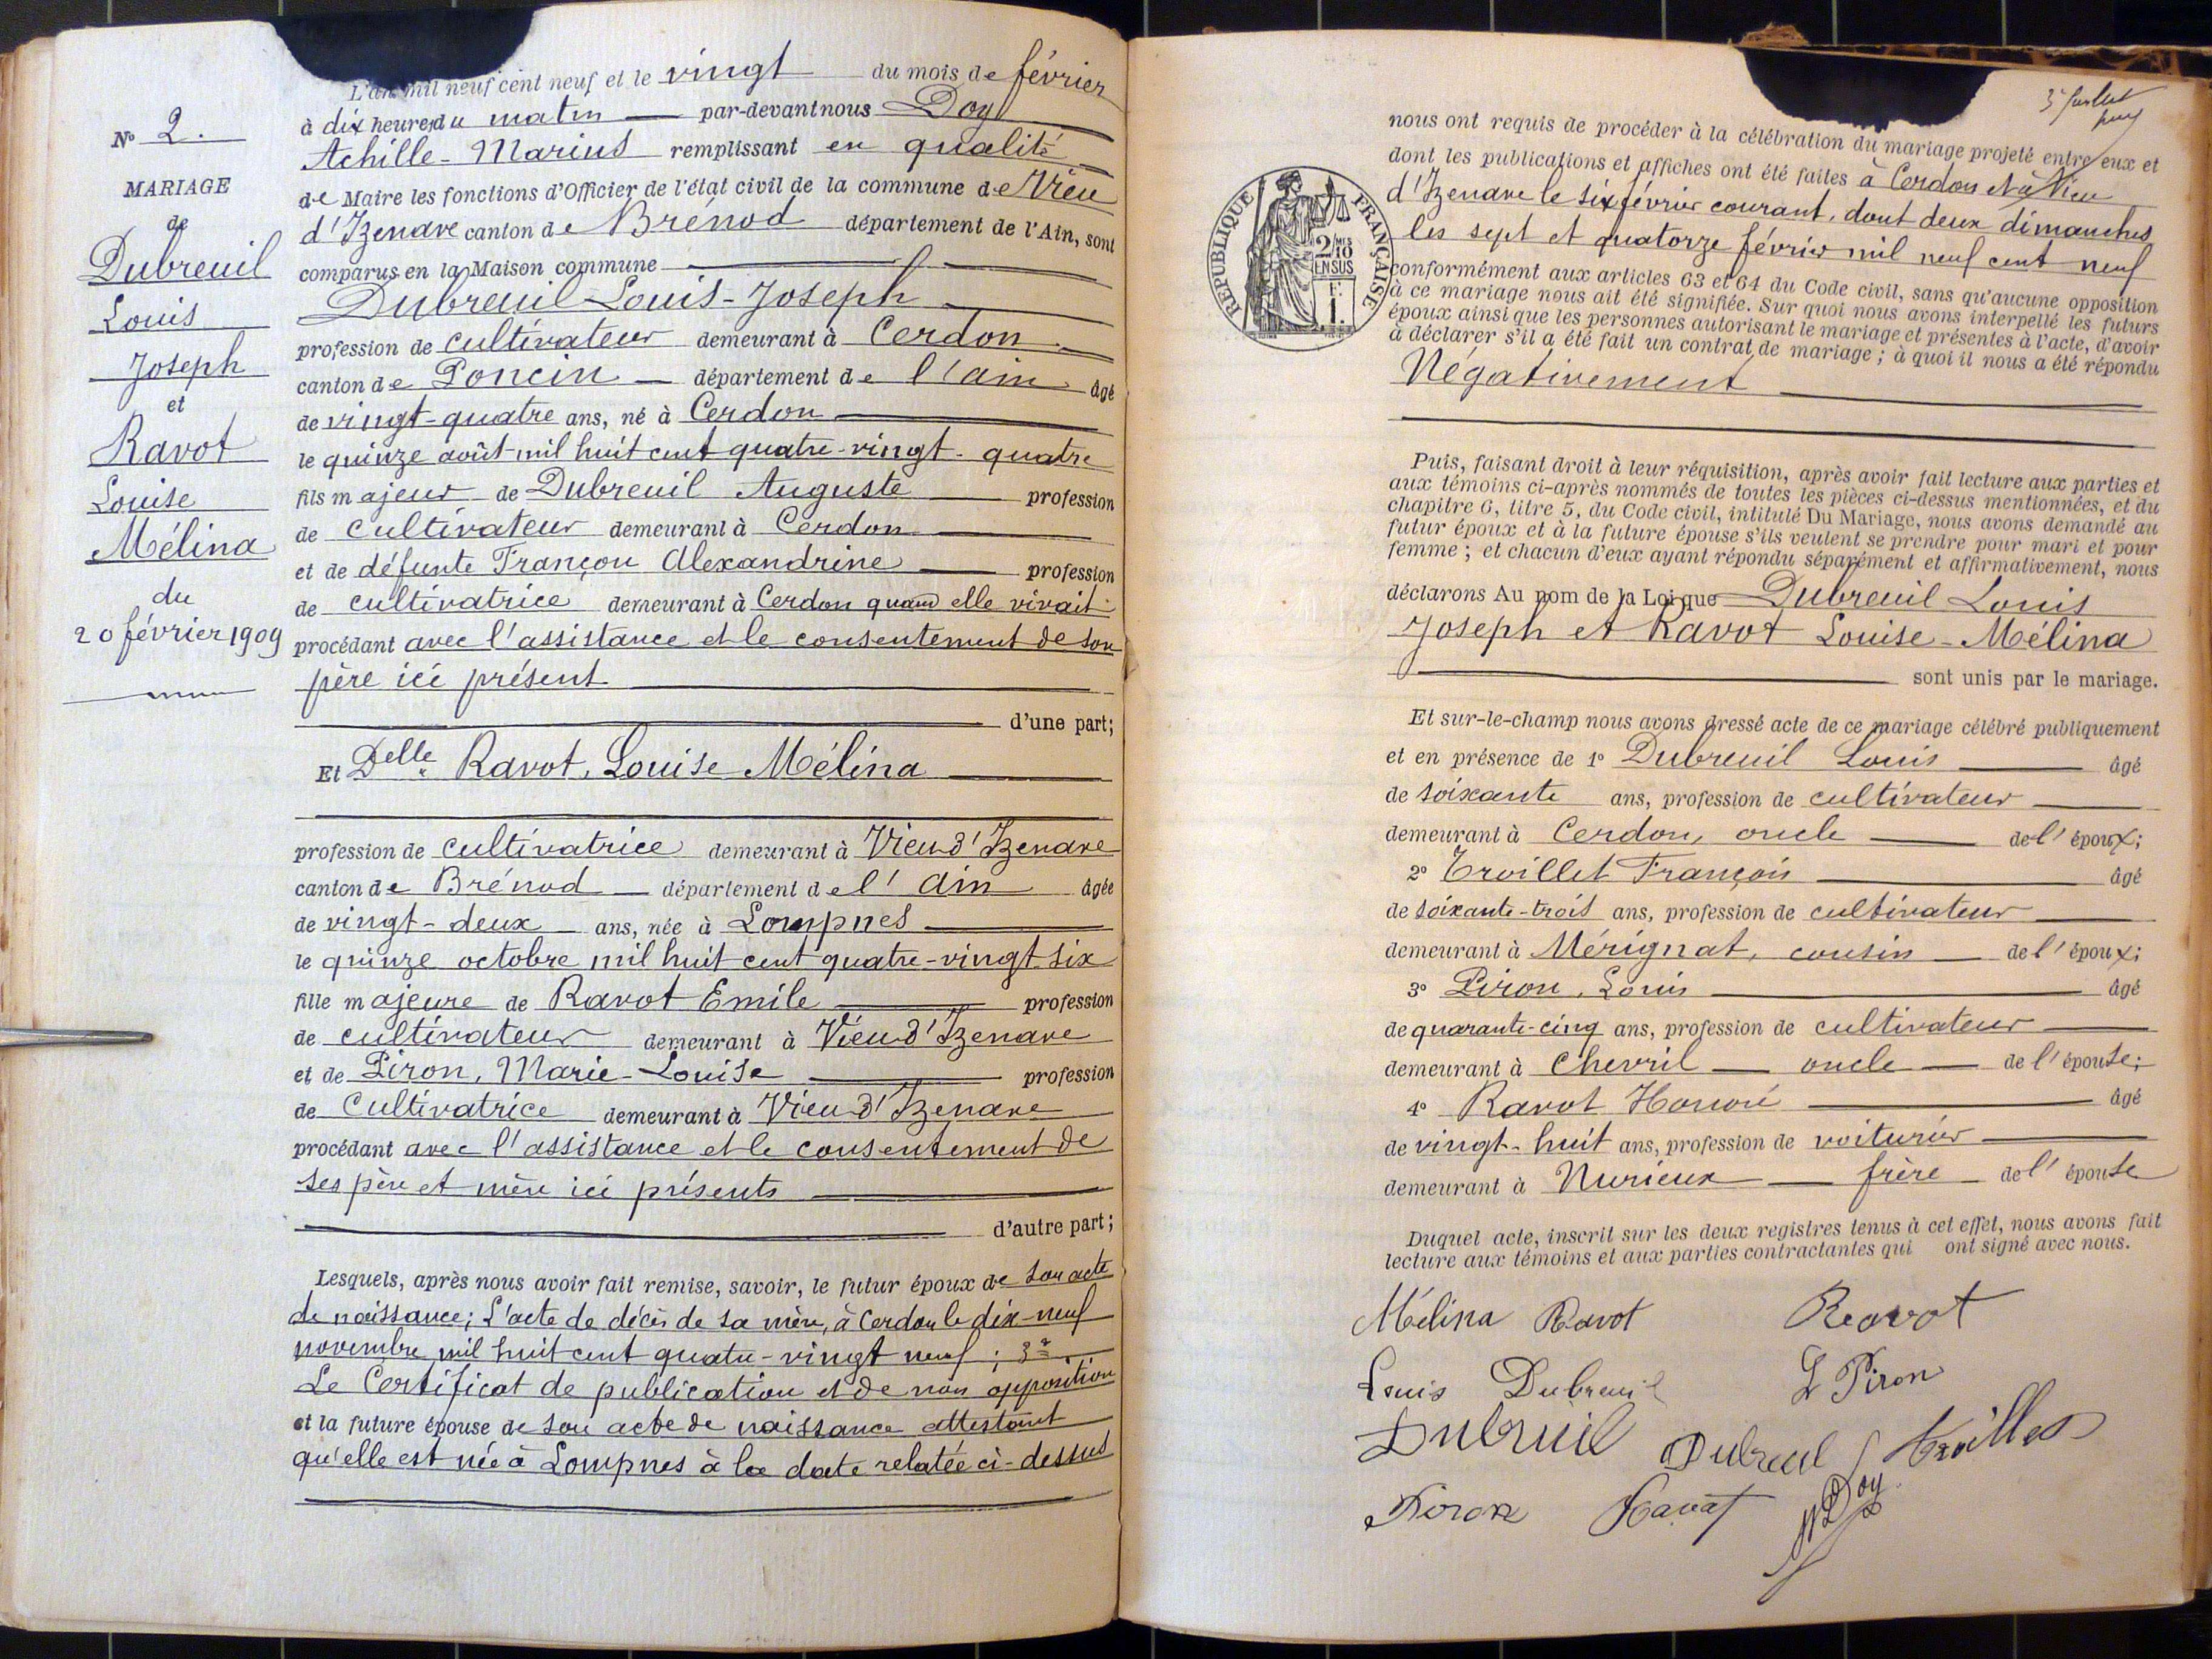 L'an mil neuf cent neuf et le vingt du mois de février
à dix heures du matin par-devant nous Doy
Achille-Marius remplissant en qualité
de Maire les fonctions d'Officier de l'état civil de la commune de Vieu
d'Izenave canton de Brénod département de l'Ain, sont
comparus en la Maison commune
Dubreuil Louis-Joseph
profession de cultivateur demeurant à Cerdon
canton de Poncin département de l'ain âgé
de vingt-quatre ans, né à Cerdon
le quinze août mil huit cent quatre-vingt-quatre
fils majeur de Dubreuil Auguste profession
de cultivateur demeurant à Cerdon
et de défunte Françon Alexandrine profession
de cultivatrice demeurant à Cerdon quand elle vivait
procédant avec l'assistance et le consentement de son
père ici présent
d'une part;
Et Delle Ravot, Louise Mélina
profession de cultivatrice demeurant à Vieu d'Izenave
canton de Brénod département de l'Ain âgée
de vingt-deux ans, née à Lompnes
le quinze octobre mil huit cent quatre-vingt six
fille majeure de Ravot Emile profession
de cultivateur demeurant à Vieu d'Izenave
et de Piron, Marie-Louise profession
de Cultivatrice demeurant à Vieu d'Izenave
procédant avec l'assistance et le consentement de
ses père et mère ici présents
d'autre part;
Lesquels, après nous avoir fait remise, savoir, le futur époux de son acte
de naissance; L'acte de décès de sa mère, à Cerdon le dix-neuf
novembre mil huit cent quatre-vingt neuf; 3º
Le Certificat de publication et de non opposition
et la future épouse de son acte de naissance attestant
qu'elle est née à Lompnes à la date relatée ci-dessus
Nº 2.
MARIAGE
de
Dubreuil
Louis
Joseph
et
Ravot
Louise
Mélina
du
20 février 1909
nous ont requis de procéder à la célébration du mariage projeté entre eux et
dont les publications et affiches ont été faites à Cerdon et à Vieu
d'Izenave le six février courant, dont deux dimanches
les sept et quatorze février mil neuf cent neuf
conformément aux articles 63 et 64 du Code civil, sans qu'aucune opposition
à ce mariage nous ait été signifiée. Sur quoi nous avons interpellé les futurs
époux ainsi que les personnes autorisant le mariage et présentes à l'acte, d'avoir
à déclarer s'il a été fait un contrat de mariage; à quoi il nous a été répondu
Négativement
RÉPUBLIQUE FRANÇAISE
2/10
EN SUS
Puis, faisant droit à leur réquisition, après avoir fait lecture aux parties et
aux témoins ci-après nommés de toutes les pièces ci-dessus mentionnées, et du
chapitre 6, titre 5, du Code civil, intitulé Du Mariage, nous avons demandé au
futur époux et à la future épouse s'ils veulent se prendre pour mari et pour
femme; et chacun d'eux ayant répondu séparément et affirmativement, nous
déclarons Au nom de la Loi que Dubreuil Louis
Joseph et Ravot Louise-Mélina
sont unis par le mariage.
Et sur-le-champ nous avons dressé acte de ce mariage célébré publiquement
et en présence de 1º Dubreuil Louis âgé
de soixante ans, profession de cultivateur
demeurant à Cerdon, oncle de l'époux;
2º Ervillet François âgé
de soixante-trois ans, profession de cultivateur
demeurant à Mérignat, cousin de l'époux;
3º Piron, Louis âgé
de quarante-cinq ans, profession de cultivateur
demeurant à Chevril oncle de l'épouse;
4º Ravot Honoré âgé
de vingt-huit ans, profession de voiturier
demeurant à Nurieux frère de l'épouse
Duquel acte, inscrit sur les deux registres tenus à cet effet, nous avons fait
lecture aux témoins et aux parties contractantes qui ont signé avec nous.
Mélina Ravot Ravot
Louis Dubreuil L Piron
Dubreuil Dubreuil
Piron Ravot Doy